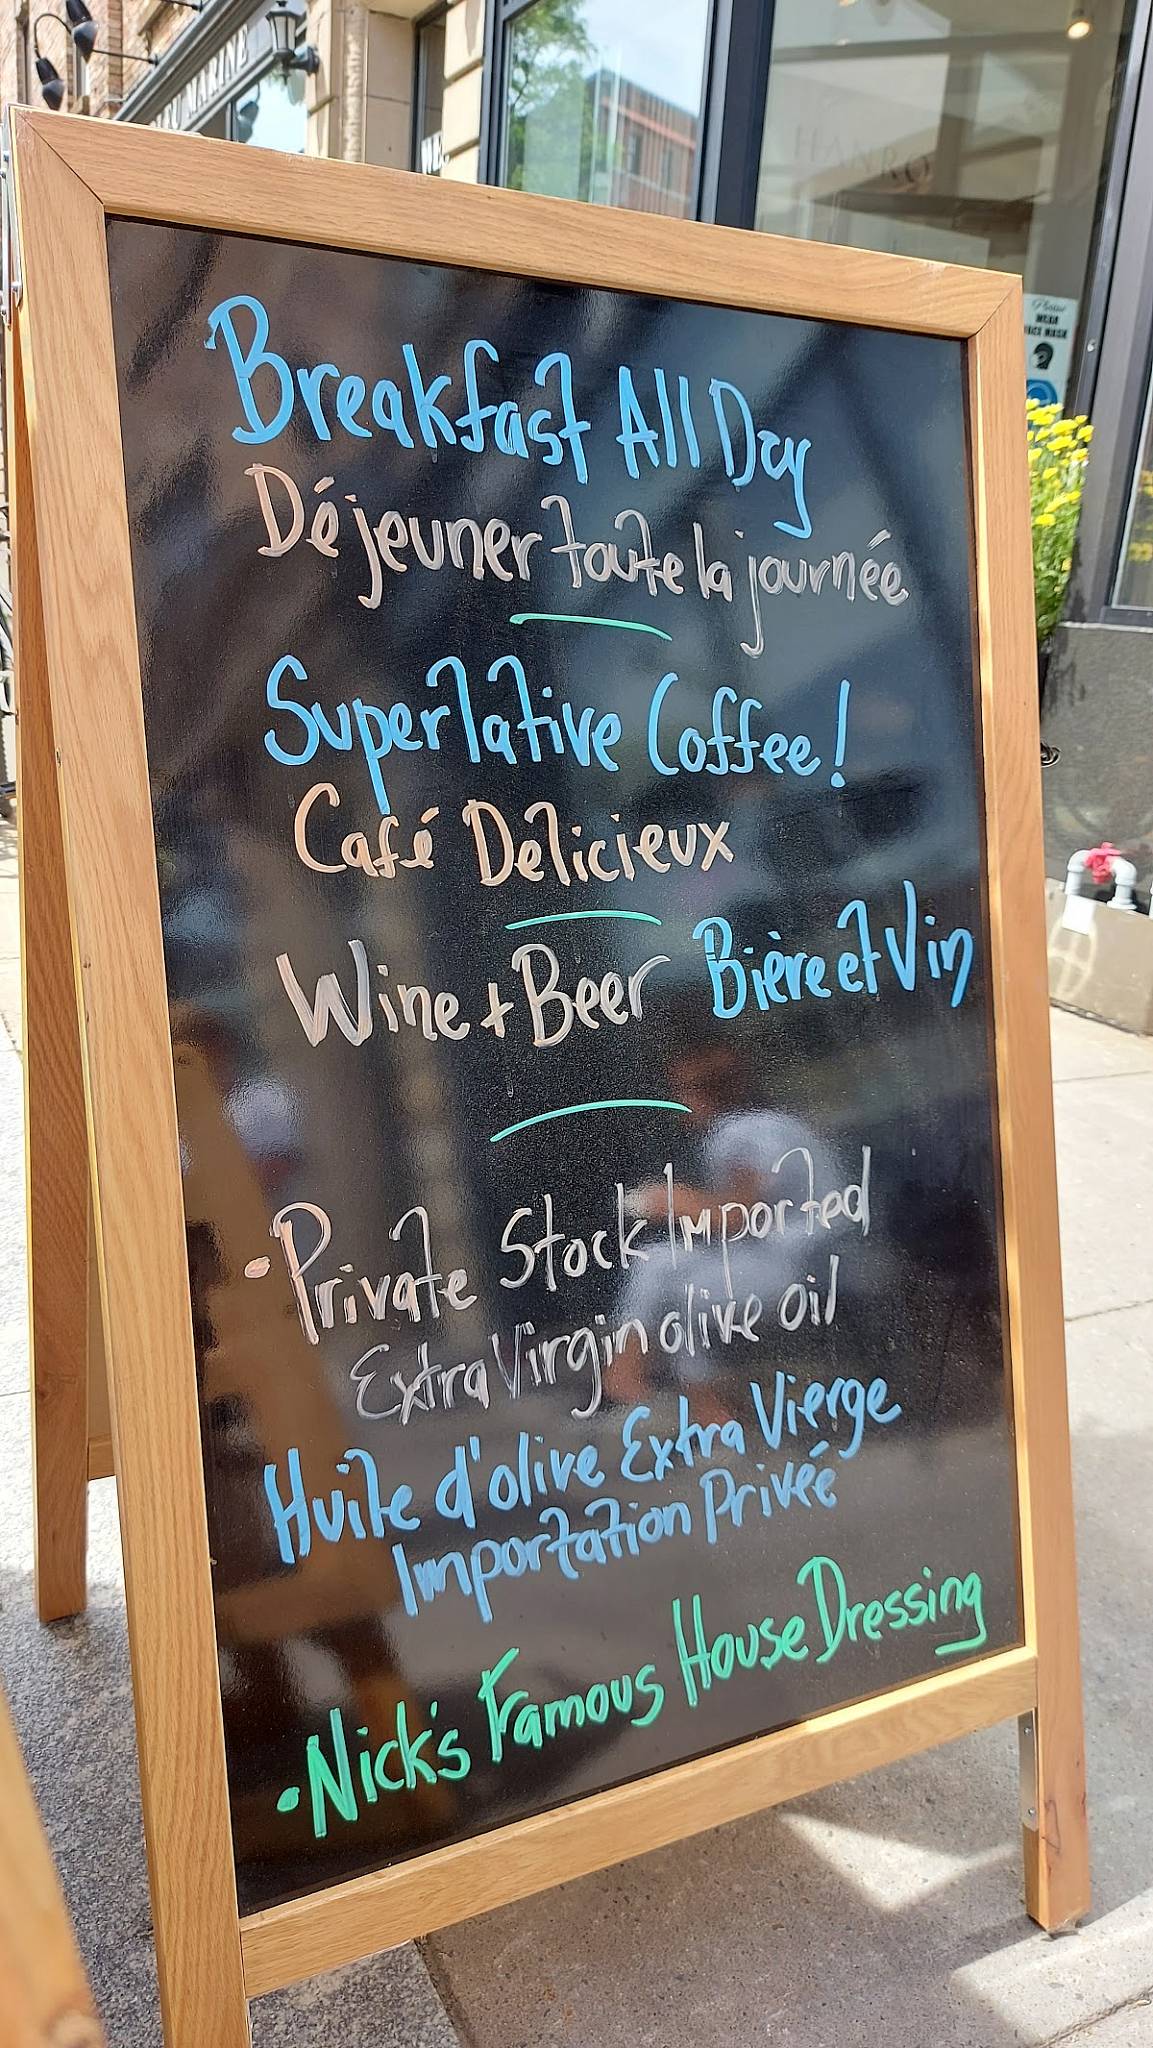 MARINE
HANRO
Please
WEAR
FACE MASK
Breakfast All Day
Déjeuner toute la journée
Superlative Coffee!
Café Delicieux
Wine + Beer Bière et Vin
• Private Stock Imported
Extra Virgin olive oil
Huile d'olive Extra Vierge
Importation Privée
• Nick's Famous House Dressing